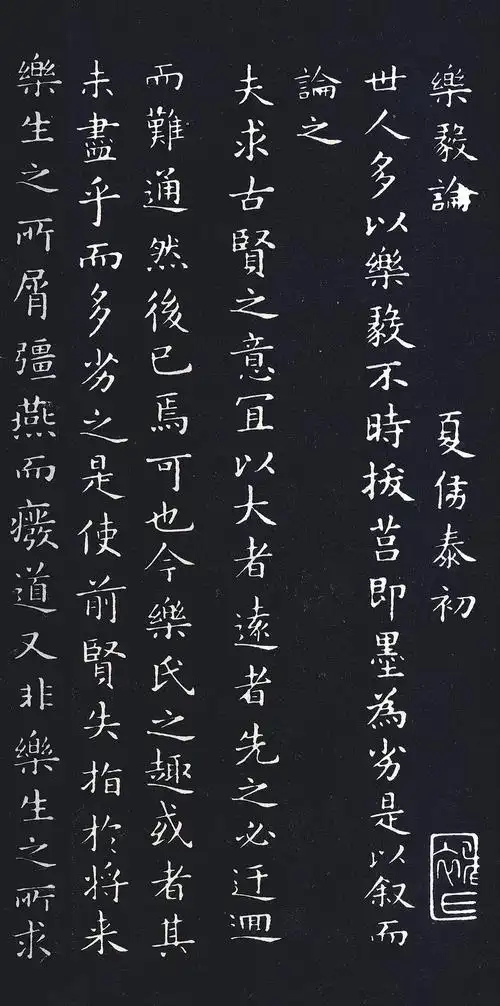 樂毅論 夏侯泰初
世人多以樂毅不時拔莒即墨為劣是以叙而
論之
夫求古賢之意宜以大者遠者先之必迂迴
而難通然後已焉可也今樂氏之趣或者其
未盡乎而多劣之是使前賢失指於将来
樂生之所屑彊燕而癈道又非樂生之所求